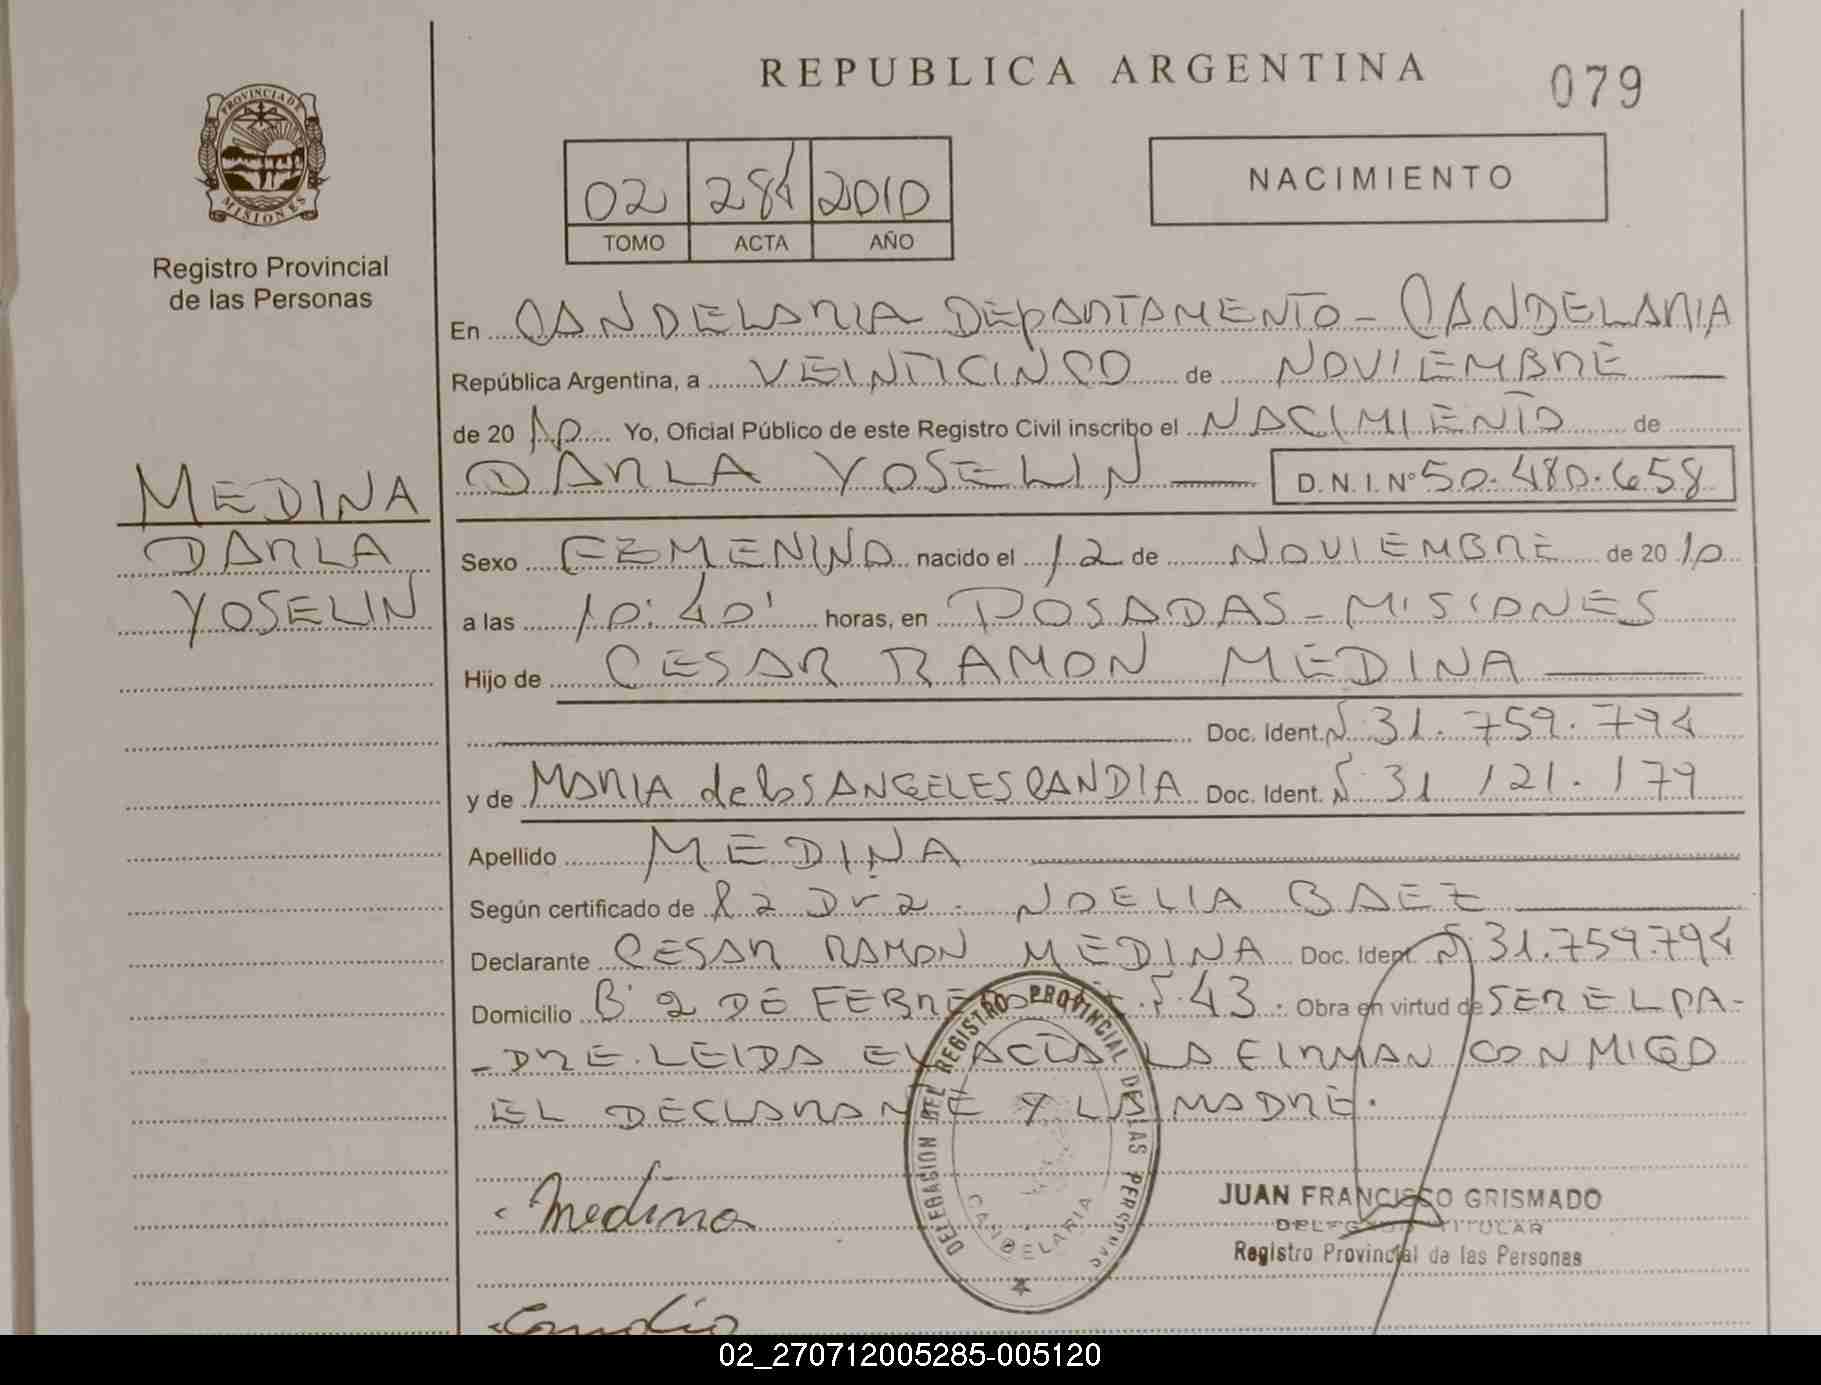 REPUBLICA ARGENTINA
079
PROVINCIA DE
MISIONES
Registro Provincial
de las Personas
02 284 2010
TOMO ACTA AÑO
NACIMIENTO
En CANDELARIA DEPARTAMENTO - CANDELARIA
República Argentina, a VEINTICINCO de NOVIEMBRE
de 20 10 Yo, Oficial Público de este Registro Civil inscribo el NACIMIENTO de
DARLA YOSELIN D.N.I. Nº 50.480.658
MEDINA
DARLA
YOSELIN
Sexo FEMENINO nacido el 12 de NOVIEMBRE de 20 10
a las 10:40' horas, en POSADAS - MISIONES
Hijo de CESAR RAMON MEDINA
Doc. Ident. Nº 31.759.794
y de MARIA de los ANGELES CANDIA Doc. Ident. Nº 31 121.179
Apellido MEDINA
Según certificado de la Dra. NOELIA BAEZ
Declarante CESAR RAMON MEDINA Doc. Ident. Nº 31.759.794
Domicilio Bº 2 DE FEBRERO 43. Obra en virtud de SER EL PA-
-DRE. LEIDA EL ACTA LA FIRMAN CONMIGO
EL DECLARANTE Y LA MADRE.
DELEGACION DEL REGISTRO PROVINCIAL DE LAS PERSONAS
CANDELARIA
Medina
JUAN FRANCISCO GRISMADO
DELEGADO TITULAR
Registro Provincial de las Personas
Candia
02_270712005285-005120